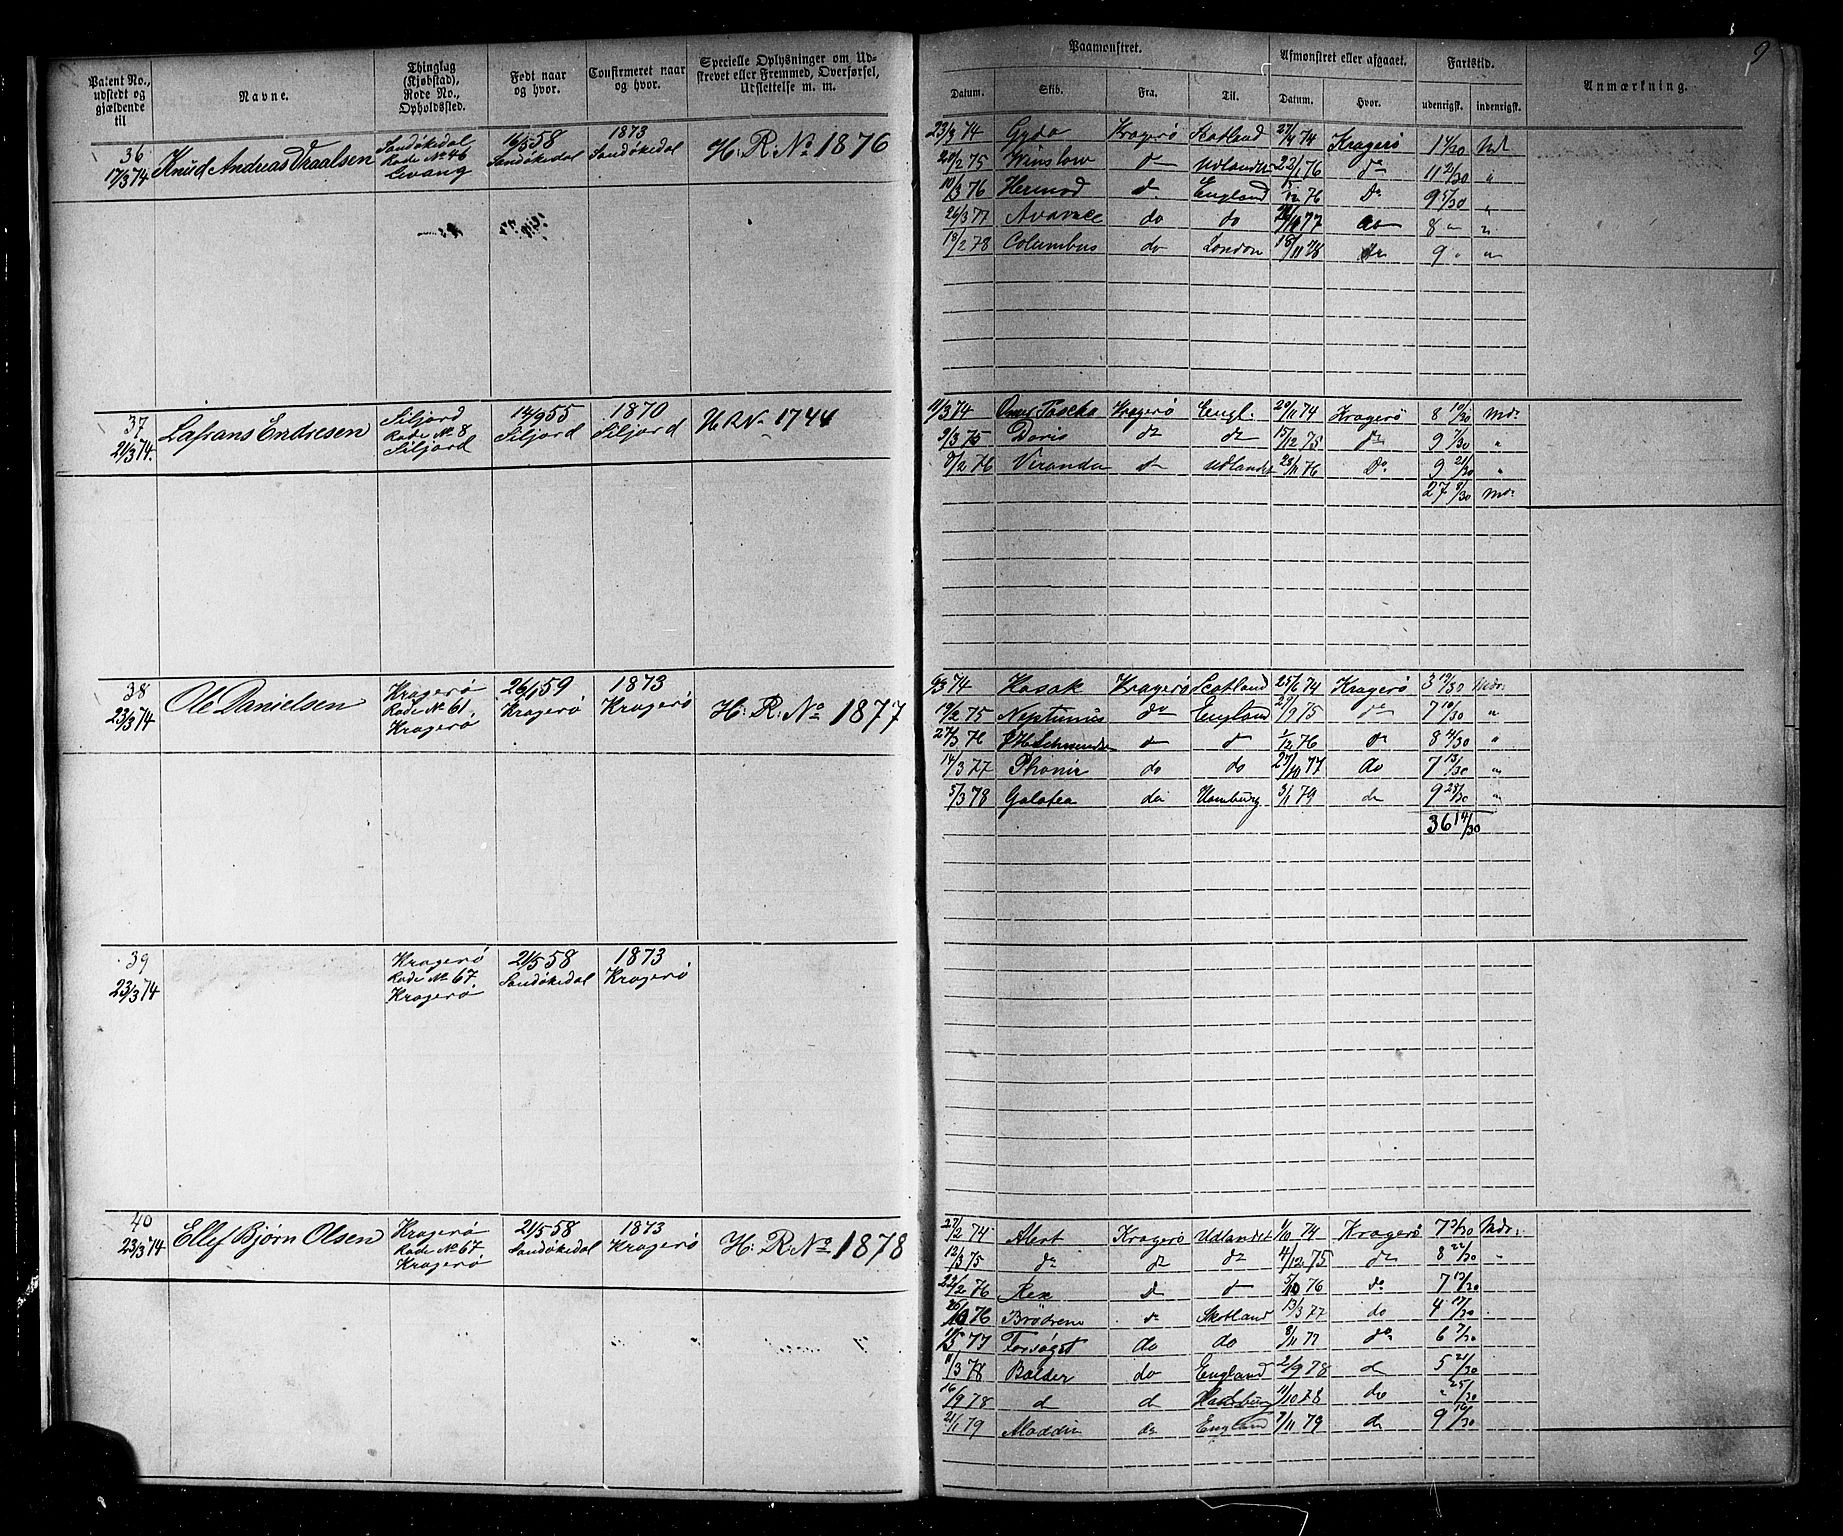 9
Patent No., udstedt og gjældende til
Navne.
Thinglag (Kjøbstad), Rode No., Opholdssted.
Født naar og hvor.
Confirmeret naar og hvor.
Specielle Oplysninger om Udskrevet eller Fremmed, Overførsel, Udslettelse m. m.
Paamønstret.
Datum. Skib. Fra. Til.
Afmønstret eller afgaaet.
Datum. Hvor.
Fartstid.
udenrigsk. indenrigsk.
Anmærkning.
36
17/3 74
Knud Andreas Vraalsen
Sandøkedal
Rode No 46
16/5 58
Sandøkedal
1873
Sandøkedal
H: R: No 1876
23/3 74 Gyda Kragerø Skotland 27/4 74 Kragerø 1 4/30 Md
20/2 75 Winslow do Udlandet 22/1 76 do 11 2/30 "
10/3 76 Hermod do England 15/12 76 Do 9 5/30 "
26/3 77 do do do 8 " "
18/2 78 Columbus do London 18/11 78 do 9 " "
37
21/3 74.
Lafrans Endresen
Siljord
Rode No 8
Siljord
14/9 55
Siljord
1870
Siljord
H R No 1744
11/3 74 Omer Pascha Kragerø Engl. 20/11 74 Kragerø 8 10/30 Mdr.
9/3 75 Doris do do 15/12 75 do 9 7/30 "
8/2 76 Veranda do Udlandet 28/11 76 Do 9 21/30 "
27 8/30 Mdr
38
23/3 74
Ole Danielsen
Kragerø
Rode No 61.
Kragerø
26/1 59
Kragerø
1873
Kragerø
H: R: No 1877
9/3 74 Kosak Kragerø Scotland 25/6 74 Kragerø 3 17/30 Mdr.
19/2 75 Neptunus do England 27/9 75 do 7 10/30 "
27/3 76 do do 1/12 76 do 8 4/30 "
14/3 77 Phønix do do 27/10 77 do 7 13/30 "
5/3 78 Galatea do Hamburg 3/1 79 do 9 28/30 "
36 14/30
39
23/3 74
Kragerø
Rode No 67.
Kragerø
21/5 58
Sandøkedal
1873
Kragerø
40
23/3 74
Ellef Bjørn Olsen
Kragerø
Rode No 67.
Kragerø
21/5 58
Sandøkedal
1873
Kragerø
H: R: No 1878
27/2 74 Abert Kragerø Udlandet 1/10 74 Kragerø 7 3/30 Mdr.
12/3 75 do do do 4/12 75 do 8 22/30 "
22/2 76 Rex do do 5/10 76 do 7 13/30
26/10 76 Brødrene do Skotland 13/3 77 do 4 17/30
77 Forsøget do do 8/11 77 do 6 7/30
11/3 78 Balder do England 2/9 78 do 5 21/30
16/9 78 do do 11/10 78 do " 25/30
21/1 79 Aladdin do England 7/11 79 do 9 16/30